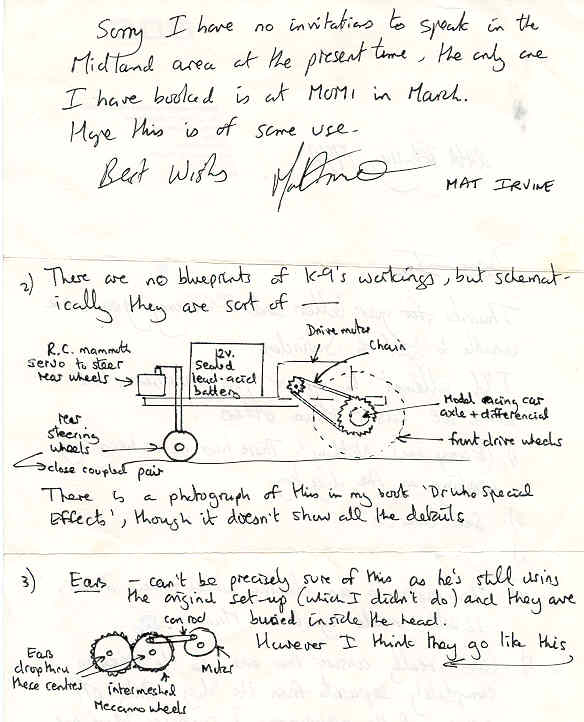 Sorry I have no invitations to speak in the
Midland area at the present time, the only one
I have booked is at MOMI in March.
Hope this is of some use.
Best Wishes
MAT IRVINE
2) There are no blueprints of K-9's workings, but schemat-
ically they are sort of —
Drive motor
Chain
R.C. mammoth
servo to steer
rear wheels
12v.
Sealed
lead-acid
battery
Model racing car
axle + differencial
front drive wheels
rear
steering
wheels
close coupled pair
There is a photograph of this in my book 'Dr Who Special
Effects', though it doesn't show all the details
3) Ears – can't be precisely sure of this as he's still using
the original set-up (which I didn't do) and they are
buried inside the head.
However I think they go like this
con rod
Motor
Ears
drop thru
these centres
intermeshed
Meccano wheels